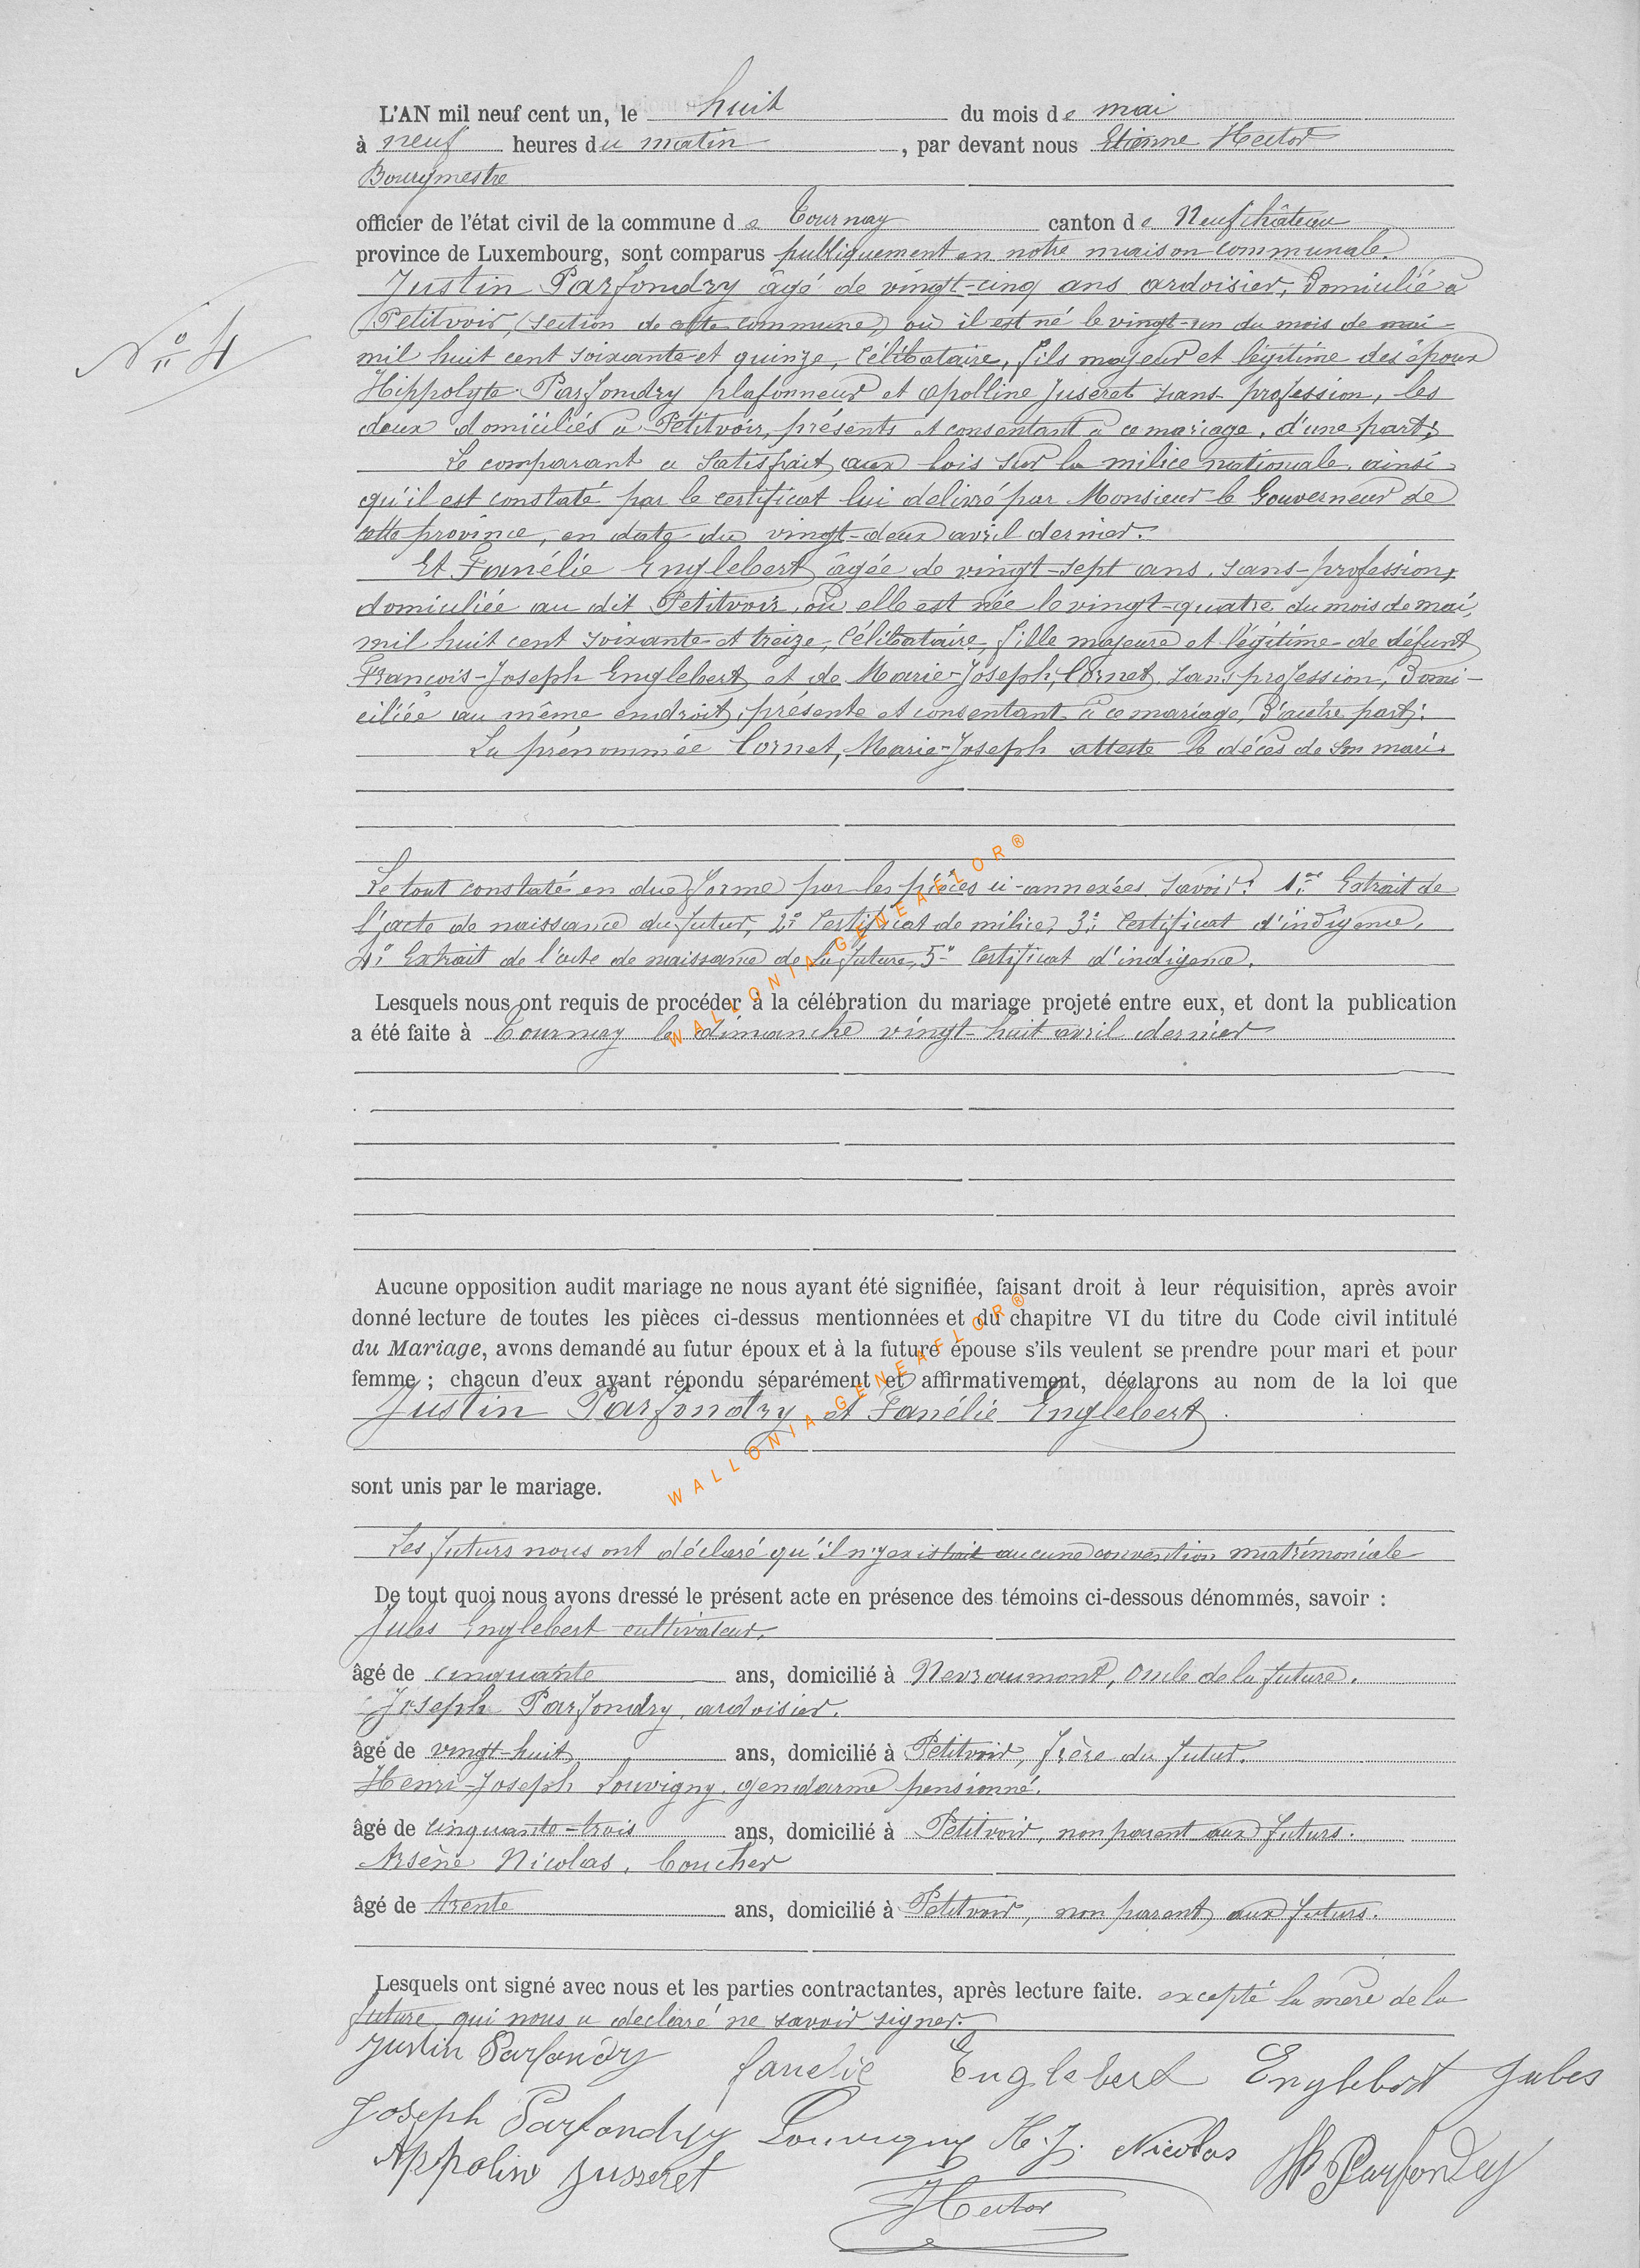 L'AN mil neuf cent un, le huit du mois de mai
à neuf heures du matin, par devant nous Etienne Hector
Bourgmestre
officier de l'état civil de la commune de Tournay canton de Neufchâteau
province de Luxembourg, sont comparus publiquement en notre maison communale.
Justin Parfondry âgé de vingt-cinq ans ardoisier, domicilié à
Petitvoir, (section de cette commune) où il est né le vingt-un du mois de mai
N° 4
mil huit cent soixante et quinze, célibataire, fils majeur et légitime des époux
Hippolyte Parfondry plafonneur et Apolline Juseret sans profession, les
deux domiciliés à Petitvoir, présents et consentant à ce mariage, d'une part;
Le comparant a satisfait aux lois sur la milice nationale, ainsi
qu'il est constaté par le certificat lui delivré par Monsieur le Gouverneur de
cette province, en date du vingt-deux avril dernier.
Et Fanélie Englebert âgée de vingt-sept ans, sans-profession,
domiciliée au dit Petitvoir, où elle est née le vingt-quatre du mois de mai,
mil huit cent soixante et treize, célibataire, fille majeure et légitime de défunt
François-Joseph Englebert et de Marie-Joseph, Cornet, sans profession, domi-
ciliée au même endroit, présente et consentant à ce mariage, d'autre part;
La prénommée Cornet, Marie-Joseph atteste le décès de son mari.
Le tout constaté en due forme par les pièces ci-annexées, savoir: 1° Extrait de
l'acte de naissance du futur, 2° Certificat de milice, 3° Certificat d'indigence,
4° Extrait de l'acte de naissance de la future, 5° Certificat d'indigence.
Lesquels nous ont requis de procéder à la célébration du mariage projeté entre eux, et dont la publication
a été faite à Tournay le dimanche vingt-huit avril dernier
WALLONIA-GENEAFLOR®
Aucune opposition audit mariage ne nous ayant été signifiée, faisant droit à leur réquisition, après avoir
donné lecture de toutes les pièces ci-dessus mentionnées et du chapitre VI du titre du Code civil intitulé
du Mariage, avons demandé au futur époux et à la future épouse s'ils veulent se prendre pour mari et pour
femme ; chacun d'eux ayant répondu séparément et affirmativement, déclarons au nom de la loi que
Justin Parfondry et Fanélie Englebert
WALLONIA-GENEAFLOR®
sont unis par le mariage.
Les futurs nous ont déclaré qu'il n'y existait aucune convention matrimoniale
De tout quoi nous avons dressé le présent acte en présence des témoins ci-dessous dénommés, savoir :
Jules Englebert cultivateur,
âgé de cinquante ans, domicilié à Nevraumont, oncle de la future.
Joseph Parfondry, ardoisier.
âgé de vingt-huit ans, domicilié à Petitvoir, frère du futur.
Henri-Joseph Louvigny, gendarme pensionné.
âgé de cinquante-trois ans, domicilié à Petitvoir, non parent aux futurs.
Arsène Nicolas,
âgé de trente ans, domicilié à Petitvoir, non parent aux futurs.
Lesquels ont signé avec nous et les parties contractantes, après lecture faite. excepté la mère de la
future, qui nous a declaré ne savoir signer.
Justin Parfondry fanelie Englebert Englebert Jules
Joseph Parfondry Louvigny H.J. Nicolas Parfondry
Appolin Jusseret
Hector